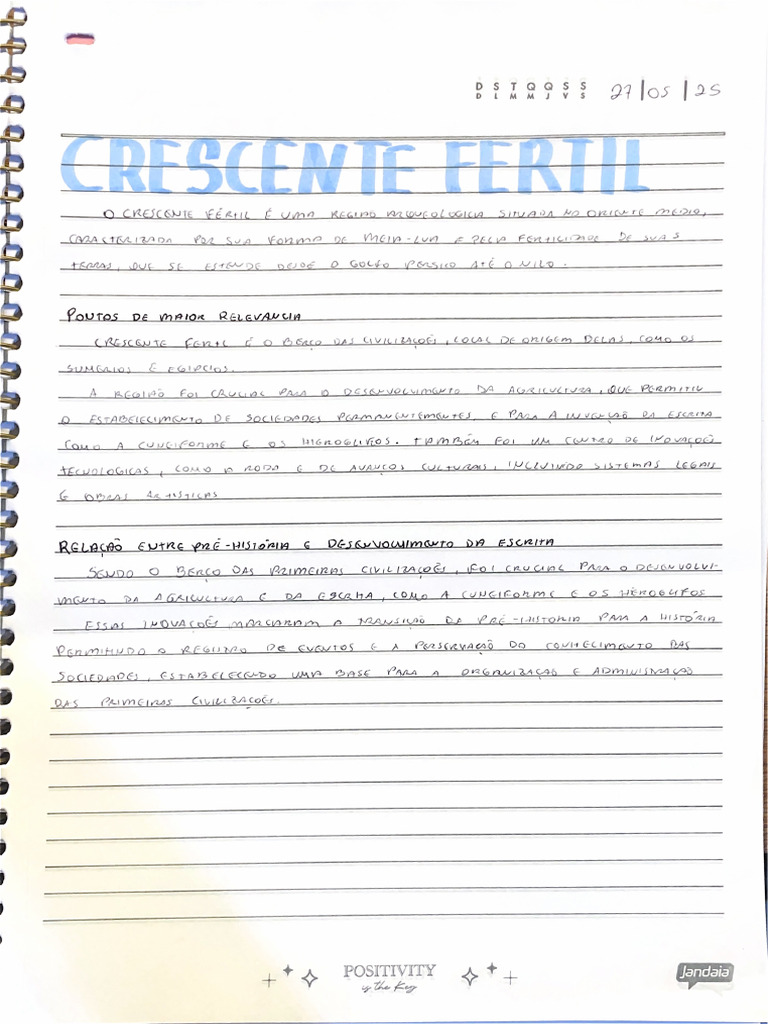 D S T Q Q S S
D L M M J V S
27/05/25
CRESCENTE FERTIL
O CRESCENTE FÉRTIL É UMA REGIÃO ARQUEOLOGICA SITUADA NO ORIENTE MEDIO,
CARACTERIZADA POR SUA FORMA DE MEIA-LUA E PELA FERTICIDADE DE SUAS
TERRAS, QUE SE ESTENDE DESDE O GOLFO PERSICO ATÉ O NILO.
PONTOS DE MAIOR RELEVANCIA
CRESCENTE FERTIL É O BERÇO DAS CIVILIZAÇÕES, LOCAL DE ORIGEM DELAS, COMO OS
SUMERIOS E EGIPCIOS.
A REGIÃO FOI CRUCIAL PARA O DESENVOLVIMENTO DA AGRICULTURA, QUE PERMITIU
O ESTABELECIMENTO DE SOCIEDADES PERMANENTEMENTES, E PARA A INVENÇÃO DA ESCRITA
COMO A CUNEIFORME E OS HIEROGLIFOS. TAMBÉM FOI UM CENTRO DE INOVAÇÕES
TECNOLOGICAS, COMO A RODA E DE AVANÇOS CULTURAIS, INCLUINDO SISTEMAS LEGAIS
E OBRAS ARTISTICAS
RELAÇÃO ENTRE PRÉ-HISTÓRIA E DESENVOLVIMENTO DA ESCRITA
SENDO O BERÇO DAS PRIMEIRAS CIVILIZAÇÕES, FOI CRUCIAL PARA O DESENVOLVI-
MENTO DA AGRICULTURA E DA ESCRITA, COMO A CUNEIFORME E OS HIEROGLIFOS
ESSAS INOVAÇÕES MARCARAM A TRANSIÇÃO DA PRÉ-HISTORIA PARA A HISTÓRIA
PERMITINDO O REGISTRO DE EVENTOS E A PERSERVAÇÃO DO CONHECIMENTO DAS
SOCIEDADES, ESTABELECENDO UMA BASE PARA A ORGANIZAÇÃO E ADMINISTRAÇÃO
DAS PRIMEIRAS CIVILIZAÇÕES.
POSITIVITY
is the Key
Jandaia